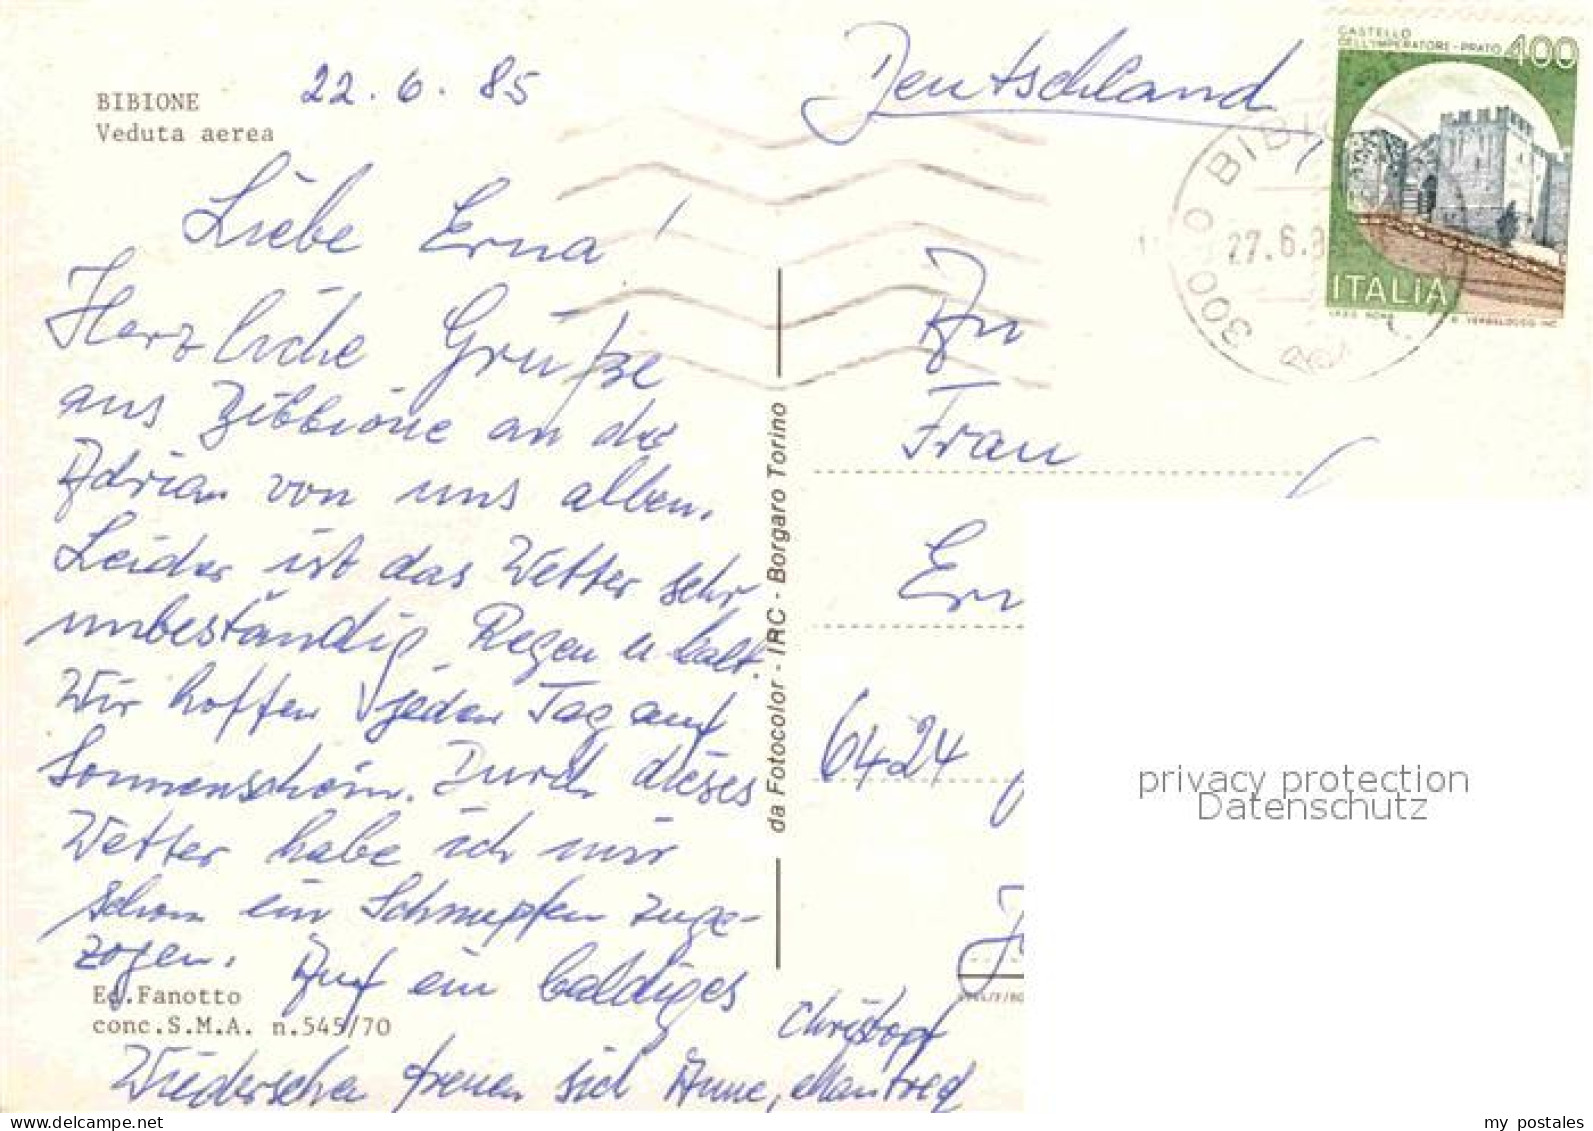 BIBIONE
Veduta aerea
22.6.85
Liebe Erna!
Herzliche Grüße
aus Bibbione an der
Adria von uns allen.
Leider ist das Wetter sehr
unbeständig Regen u kalt.
Wir hoffen jeden Tag auf
Sonnenschein. Durch dieses
Wetter habe ich mir
schon ein Schnupfen zuge-
zogen. Auf ein baldiges
Wiedersehen freuen sich Anne, Manfred
Christopf
Ed.Fanotto
conc.S.M.A. n.545/70
da Fotocolor - IRC - Borgaro Torino
Deutschland
An
Frau
Ern
6424
CASTELLO
DELL'IMPERATORE - PRATO
400
ITALIA
I.P.Z.S. ROMA
30020 BIBIO
27.6.8
privacy protection
Datenschutz
my postales